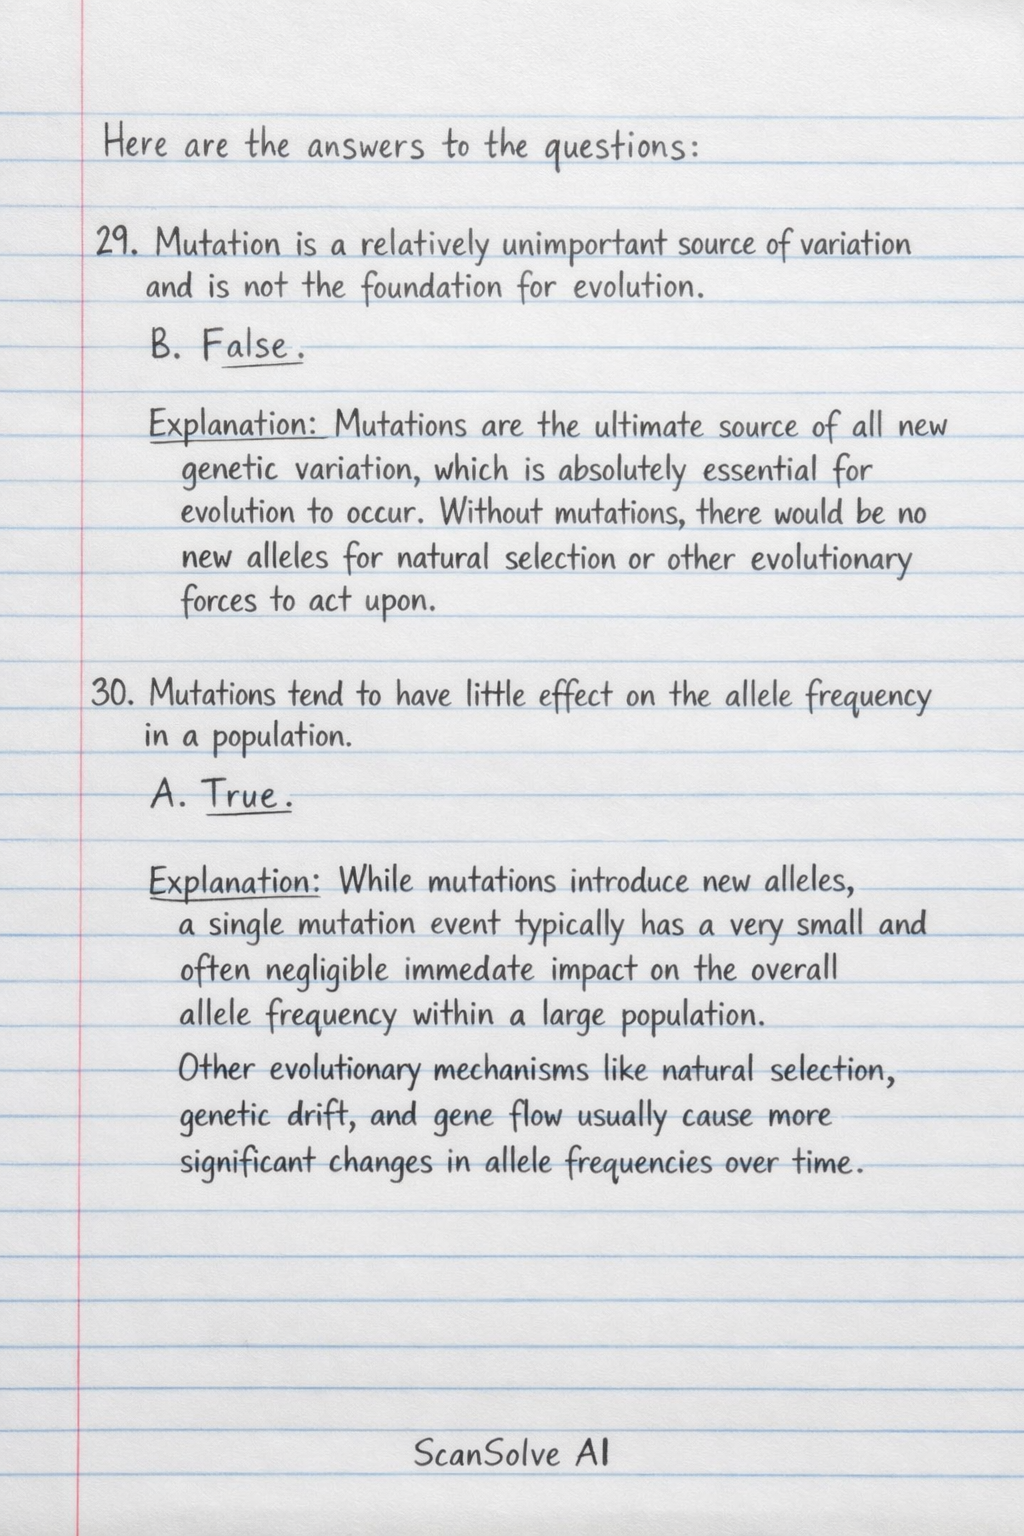 Here are the answers to the questions:
29. Mutation is a relatively unimportant source of variation
and is not the foundation for evolution.
B. False.
Explanation: Mutations are the ultimate source of all new
genetic variation, which is absolutely essential for
evolution to occur. Without mutations, there would be no
new alleles for natural selection or other evolutionary
forces to act upon.
30. Mutations tend to have little effect on the allele frequency
in a population.
A. True.
Explanation: While mutations introduce new alleles,
a single mutation event typically has a very small and
often negligible immedate impact on the overall
allele frequency within a large population.
Other evolutionary mechanisms like natural selection,
genetic drift, and gene flow usually cause more
significant changes in allele frequencies over time.
ScanSolve AI